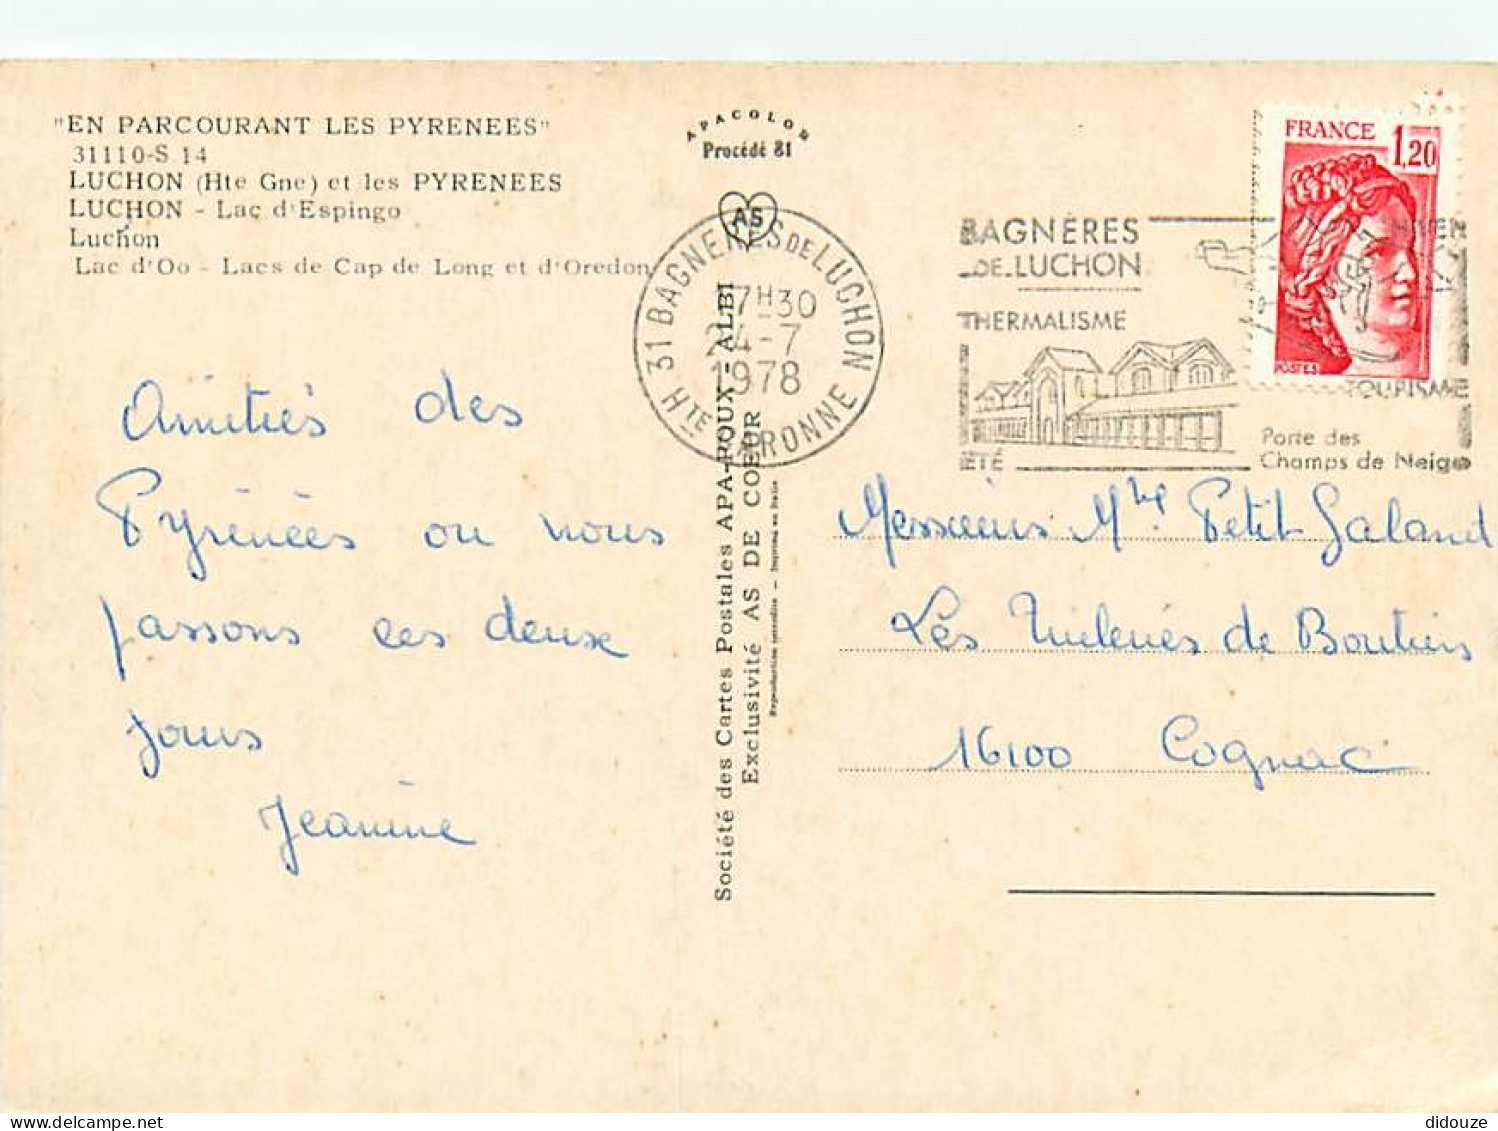 "EN PARCOURANT LES PYRENEES"
31110-S 14
LUCHON (Hte Gne) et les PYRENEES
LUCHON - Lac d'Espingo
Luchon
Lac d'Oo - Lacs de Cap de Long et d'Oredon
Amitiés des
Pyrénées ou nous
passons ces deux
jours
Jeanine
APACOLOR
Procédé 81
AS
31 BAGNERES DE LUCHON
17H30
24-7
1978
HTE GARONNE
Société des Cartes Postales APA-POUX - ALBI
Exclusivité AS DE COEUR
Reproduction interdite - Imprimé en Italie
BAGNÉRES
DE LUCHON
THERMALISME
ÉTÉ
HIVER
TOURISME
Porte des
Champs de Neige
FRANCE
1,20
POSTES
Messieurs Mme Petit Galand
Les de Boutiers
16100 Cognac
didouze